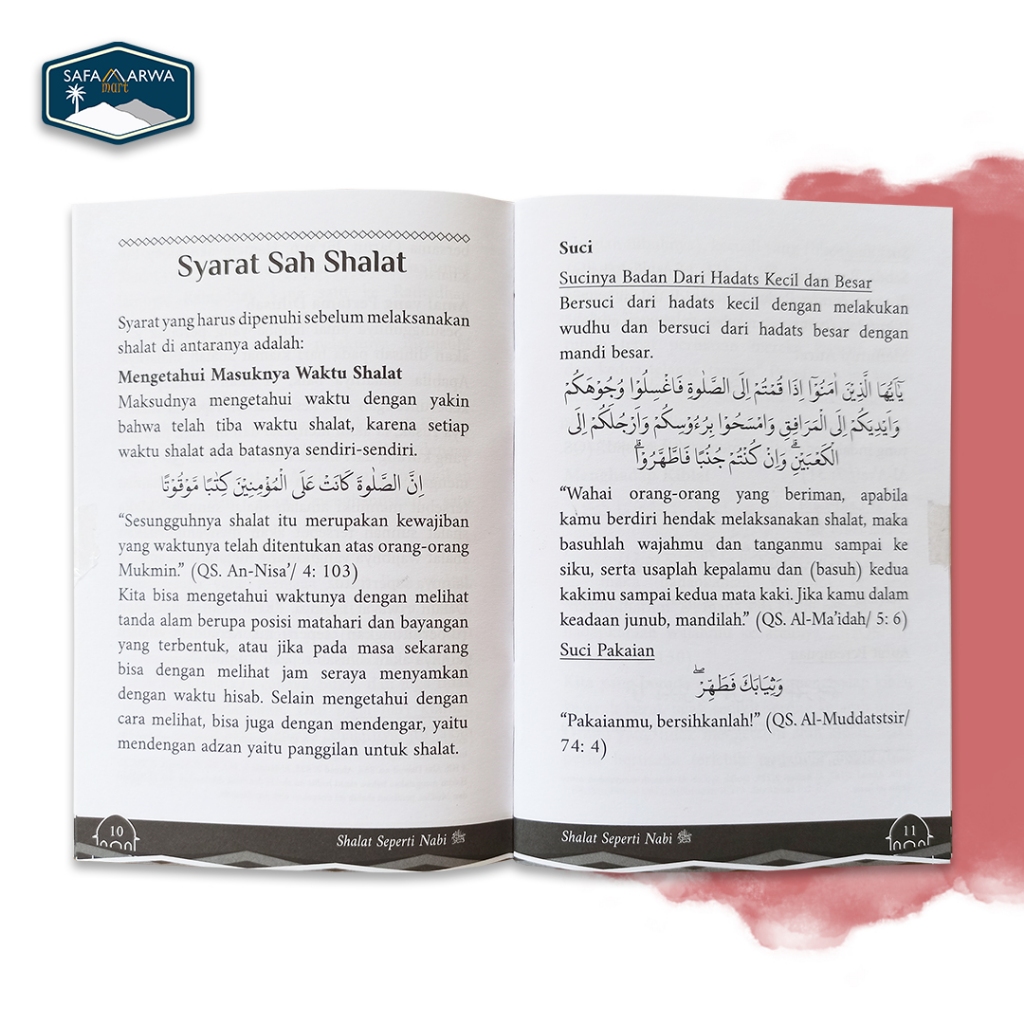 SAFA MARWA
mart
Syarat Sah Shalat
Syarat yang harus dipenuhi sebelum melaksanakan
shalat di antaranya adalah:
Mengetahui Masuknya Waktu Shalat
Maksudnya mengetahui waktu dengan yakin
bahwa telah tiba waktu shalat, karena setiap
waktu shalat ada batasnya sendiri-sendiri.
اِنَّ الصَّلٰوةَ كَانَتْ عَلَى الْمُؤْمِنِيْنَ كِتٰبًا مَّوْقُوْتًا
“Sesungguhnya shalat itu merupakan kewajiban
yang waktunya telah ditentukan atas orang-orang
Mukmin.” (QS. An-Nisa’/ 4: 103)
Kita bisa mengetahui waktunya dengan melihat
tanda alam berupa posisi matahari dan bayangan
yang terbentuk, atau jika pada masa sekarang
bisa dengan melihat jam seraya menyamkan
dengan waktu hisab. Selain mengetahui dengan
cara melihat, bisa juga dengan mendengar, yaitu
mendengan adzan yaitu panggilan untuk shalat.
10
Shalat Seperti Nabi ﷺ
Suci
Sucinya Badan Dari Hadats Kecil dan Besar
Bersuci dari hadats kecil dengan melakukan
wudhu dan bersuci dari hadats besar dengan
mandi besar.
يٰٓاَيُّهَا الَّذِيْنَ اٰمَنُوْٓا اِذَا قُمْتُمْ اِلَى الصَّلٰوةِ فَاغْسِلُوْا وُجُوْهَكُمْ
وَاَيْدِيَكُمْ اِلَى الْمَرَافِقِ وَامْسَحُوْا بِرُءُوْسِكُمْ وَاَرْجُلَكُمْ اِلَى
الْكَعْبَيْنِۗ وَاِنْ كُنْتُمْ جُنُبًا فَاطَّهَّرُوْاۗ
“Wahai orang-orang yang beriman, apabila
kamu berdiri hendak melaksanakan shalat, maka
basuhlah wajahmu dan tanganmu sampai ke
siku, serta usaplah kepalamu dan (basuh) kedua
kakimu sampai kedua mata kaki. Jika kamu dalam
keadaan junub, mandilah.” (QS. Al-Ma’idah/ 5: 6)
Suci Pakaian
وَثِيَابَكَ فَطَهِّرْۖ
“Pakaianmu, bersihkanlah!” (QS. Al-Muddatstsir/
74: 4)
Shalat Seperti Nabi ﷺ
11